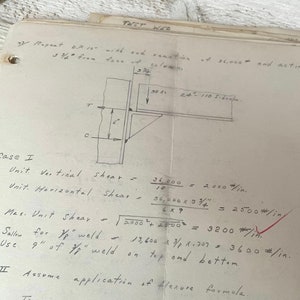 TEST WELD
Repeat with end reaction of 36,000# and acting
3 3/4" from face of column.
T
6"
C
Case I
Unit Vertical Shear = 36,000 / 18 = 2000 #/in.
Unit Horizontal Shear = 36,000 x 3 3/4 / 6 x 9 = 2500 #/in
Max. Unit Shear = √2000² + 2500² = 3200 #/in
for 3/8" weld = 13,600 x 3/8 x .707 = 3600 #/in.
Use 9" of 3/8" weld on top and bottom
II Assume application of flexure formula